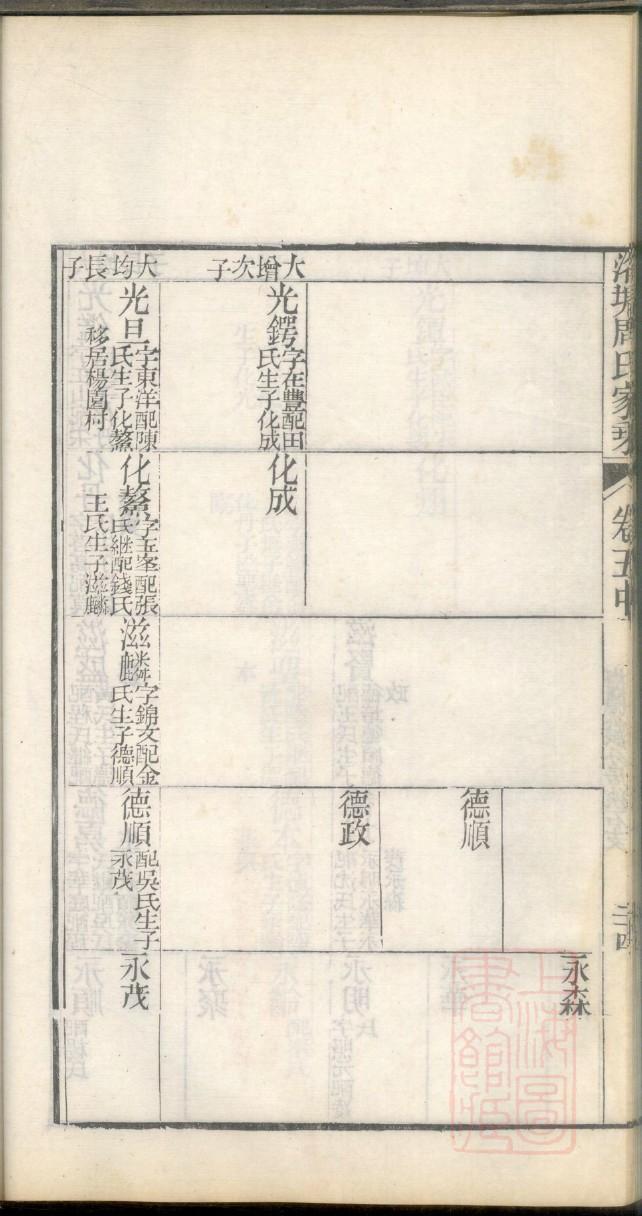 周氏家乘
卷五中
二四
永森
德順
德政
大增次子
光鍔
字在豐配田
氏生子化成
化成
大均長子
光旦
字東洋配陳
氏生子化鰲
移居楊園村
化鰲
字玉峯配張
氏繼配錢氏
王氏生子滋麟
滋麟
字錦文配金
氏生子德順
德順
配吳氏生子
永茂
永茂
上海圖書館藏